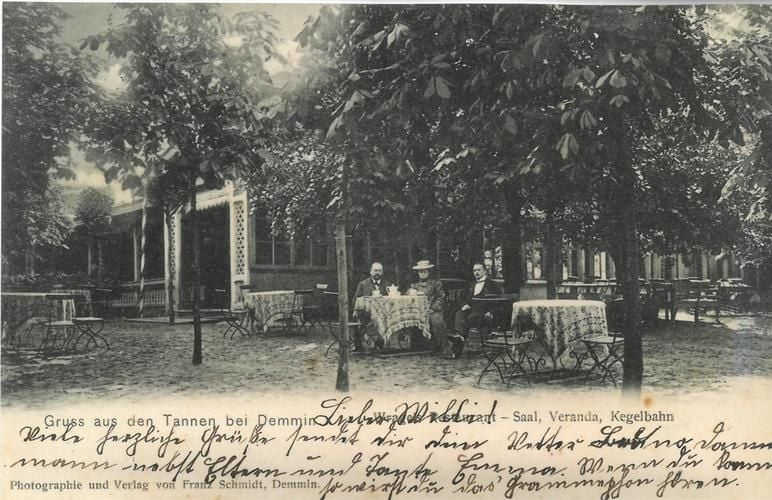 Gruss aus den Tannen bei Demmin. Wragels Restaurant - Saal, Veranda, Kegelbahn
Lieber Willi!
Viele herzliche Grüße sendet dir dein Vetter Bruno Damm
mann nebst Eltern und Tante Emma. Wenn du komm
Photographie und Verlag von Franz Schmidt, Demmin.
so wirst du das Grammephon hören.